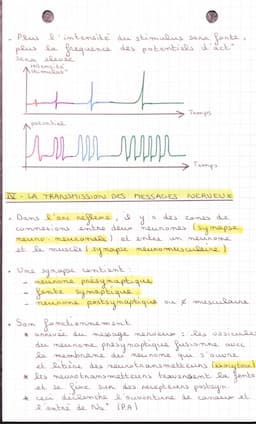 - Plus l'intensité du stimulus sera forte,
plus la fréquence des potentiels d'act°
sera élevée
intensité
stimulat°
Temps
potentiel
Temps
IV - LA TRANSMISSION DES MESSAGES NERVEUX
- Dans l'arc réflexe, il y a des zones de
connexions entre deux neurones (synapse
neuro-neuronale) et entre un neurone
et le muscle (synapse neuromusculaire)
- Une synapse contient :
- neurone présynaptique
- fente synaptique
- neurone postsynaptique ou ¢ musculaire
- Son fonctionnement
* arrivée du message nerveux : les vésicules
du neurone présynaptique fusionne avec
la membrane du neurone qui s'ouvre
et libère des neurotransmetteurs (exocytose)
* les neurotransmetteurs traversent la fente
et se fixe sur des récepteurs postsyn.
* ceci déclenche l'ouverture de canaux et
l'entré de Na⁺ (PA)